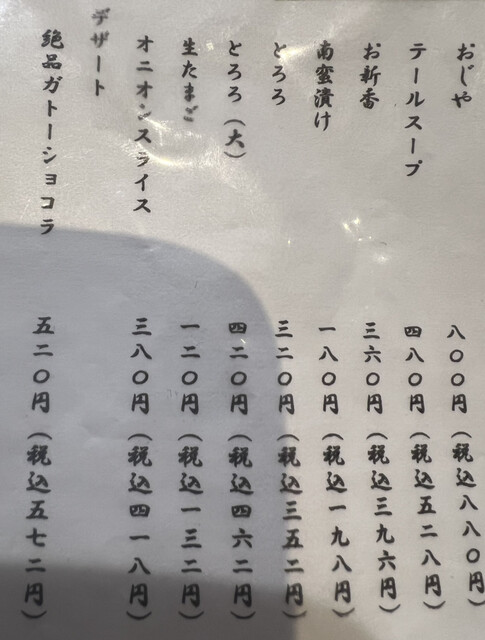 おじや 八〇〇円（税込八八〇円）
テールスープ 四八〇円（税込五二八円）
お新香 三六〇円（税込三九六円）
南蛮漬け 一八〇円（税込一九八円）
とろろ 三二〇円（税込三五二円）
とろろ（大） 四二〇円（税込四六二円）
生たまご 一二〇円（税込一三二円）
オニオンスライス 三八〇円（税込四一八円）
デザート
絶品ガトーショコラ 五二〇円（税込五七二円）